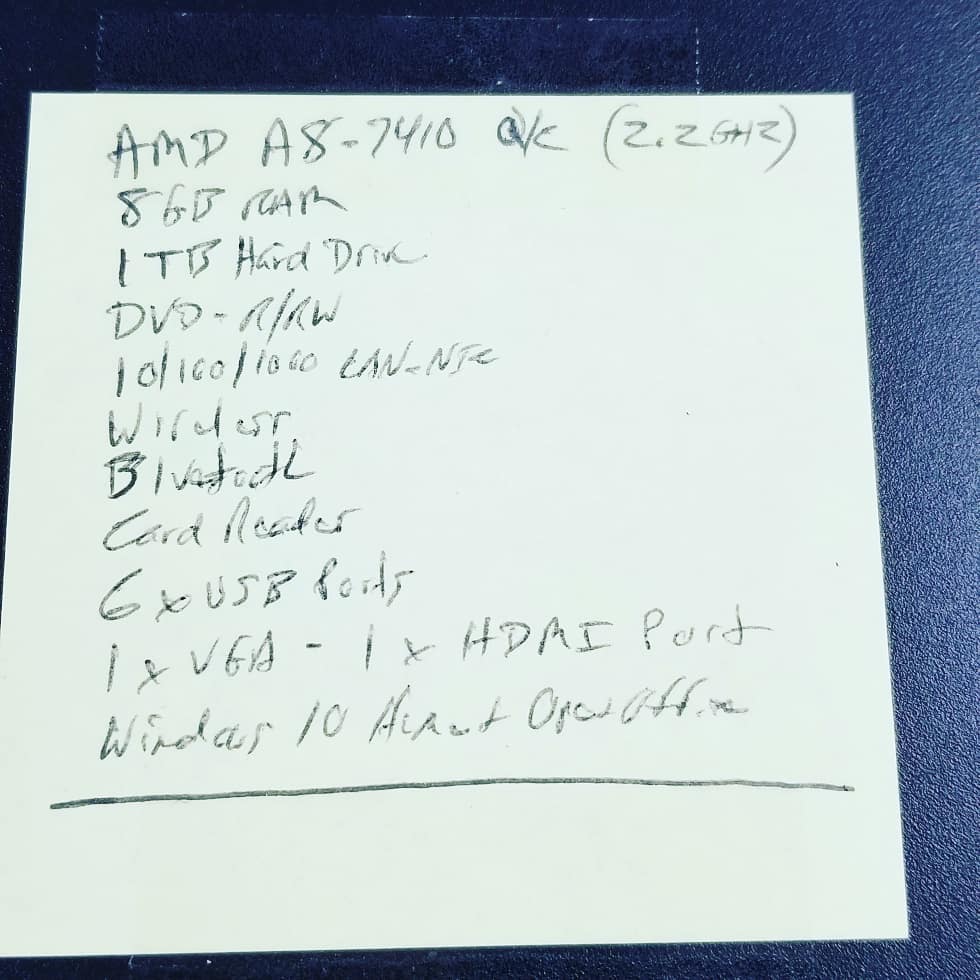 AMD A8-7410 Q/C (2.2GHZ)
8 GB RAM
1 TB Hard Drive
DVD-R/RW
10/100/1000 LAN-NIC
Wireless
Bluetooth
Card Reader
6 x USB Ports
1 x VGA - 1 x HDMI Port
Windows 10 Open Office